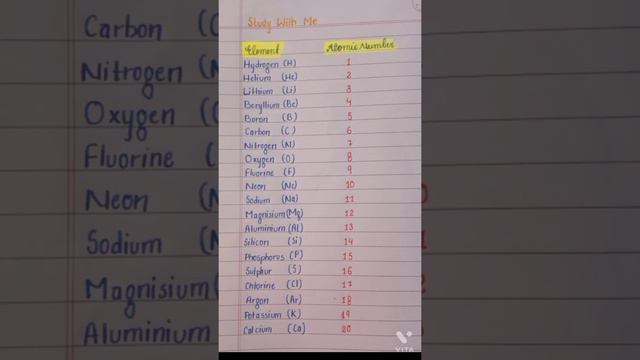 Study With Me
Element Atomic Number
Hydrogen (H) 1
Helium (He) 2
Lithium (Li) 3
Beryllium (Be) 4
Boron (B) 5
Carbon (C) 6
Nitrogen (N) 7
Oxygen (O) 8
Fluorine (F) 9
Neon (Ne) 10
Sodium (Na) 11
Magnisium (Mg) 12
Aluminium (Al) 13
Silicon (Si) 14
Phosphorus (P) 15
Sulphur (S) 16
Chlorine (Cl) 17
Argon (Ar) 18
Potassium (K) 19
Calcium (Ca) 20
VITA
Carbon (
Nitrogen (N
Oxygen (O
Fluorine (
Neon (N
Sodium (N
Magnisium (
Aluminium (